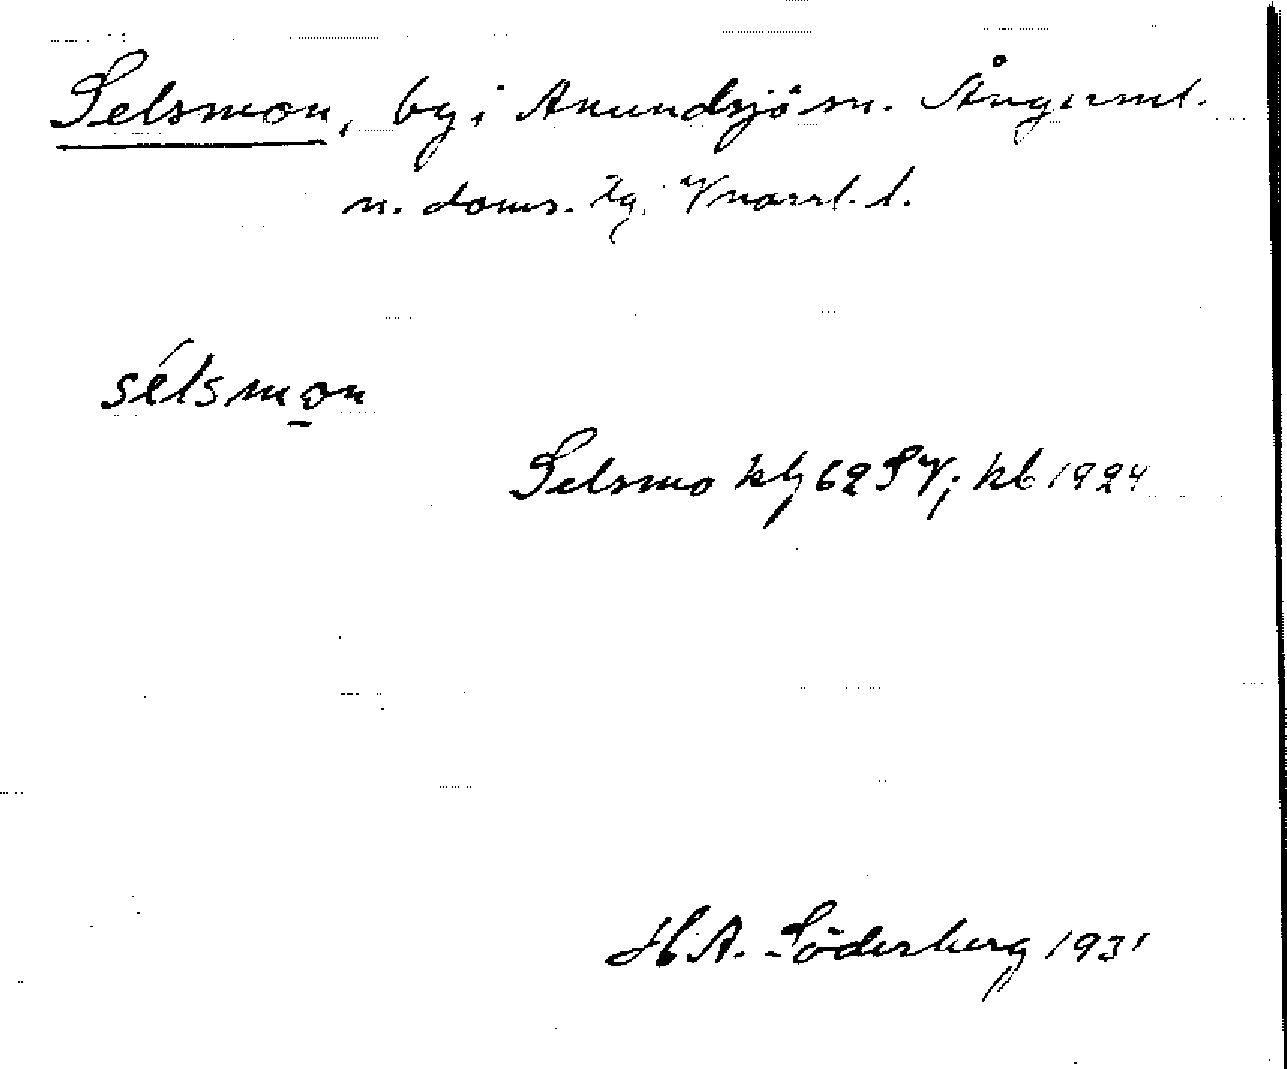 Selsmon, by i Anundsjö sn. Ångerml.
n. doms. tg. Vnorrl. l.
sélsmon
Selsmo kbl 62 SV; kb 1924
H.A. Söderberg 1931